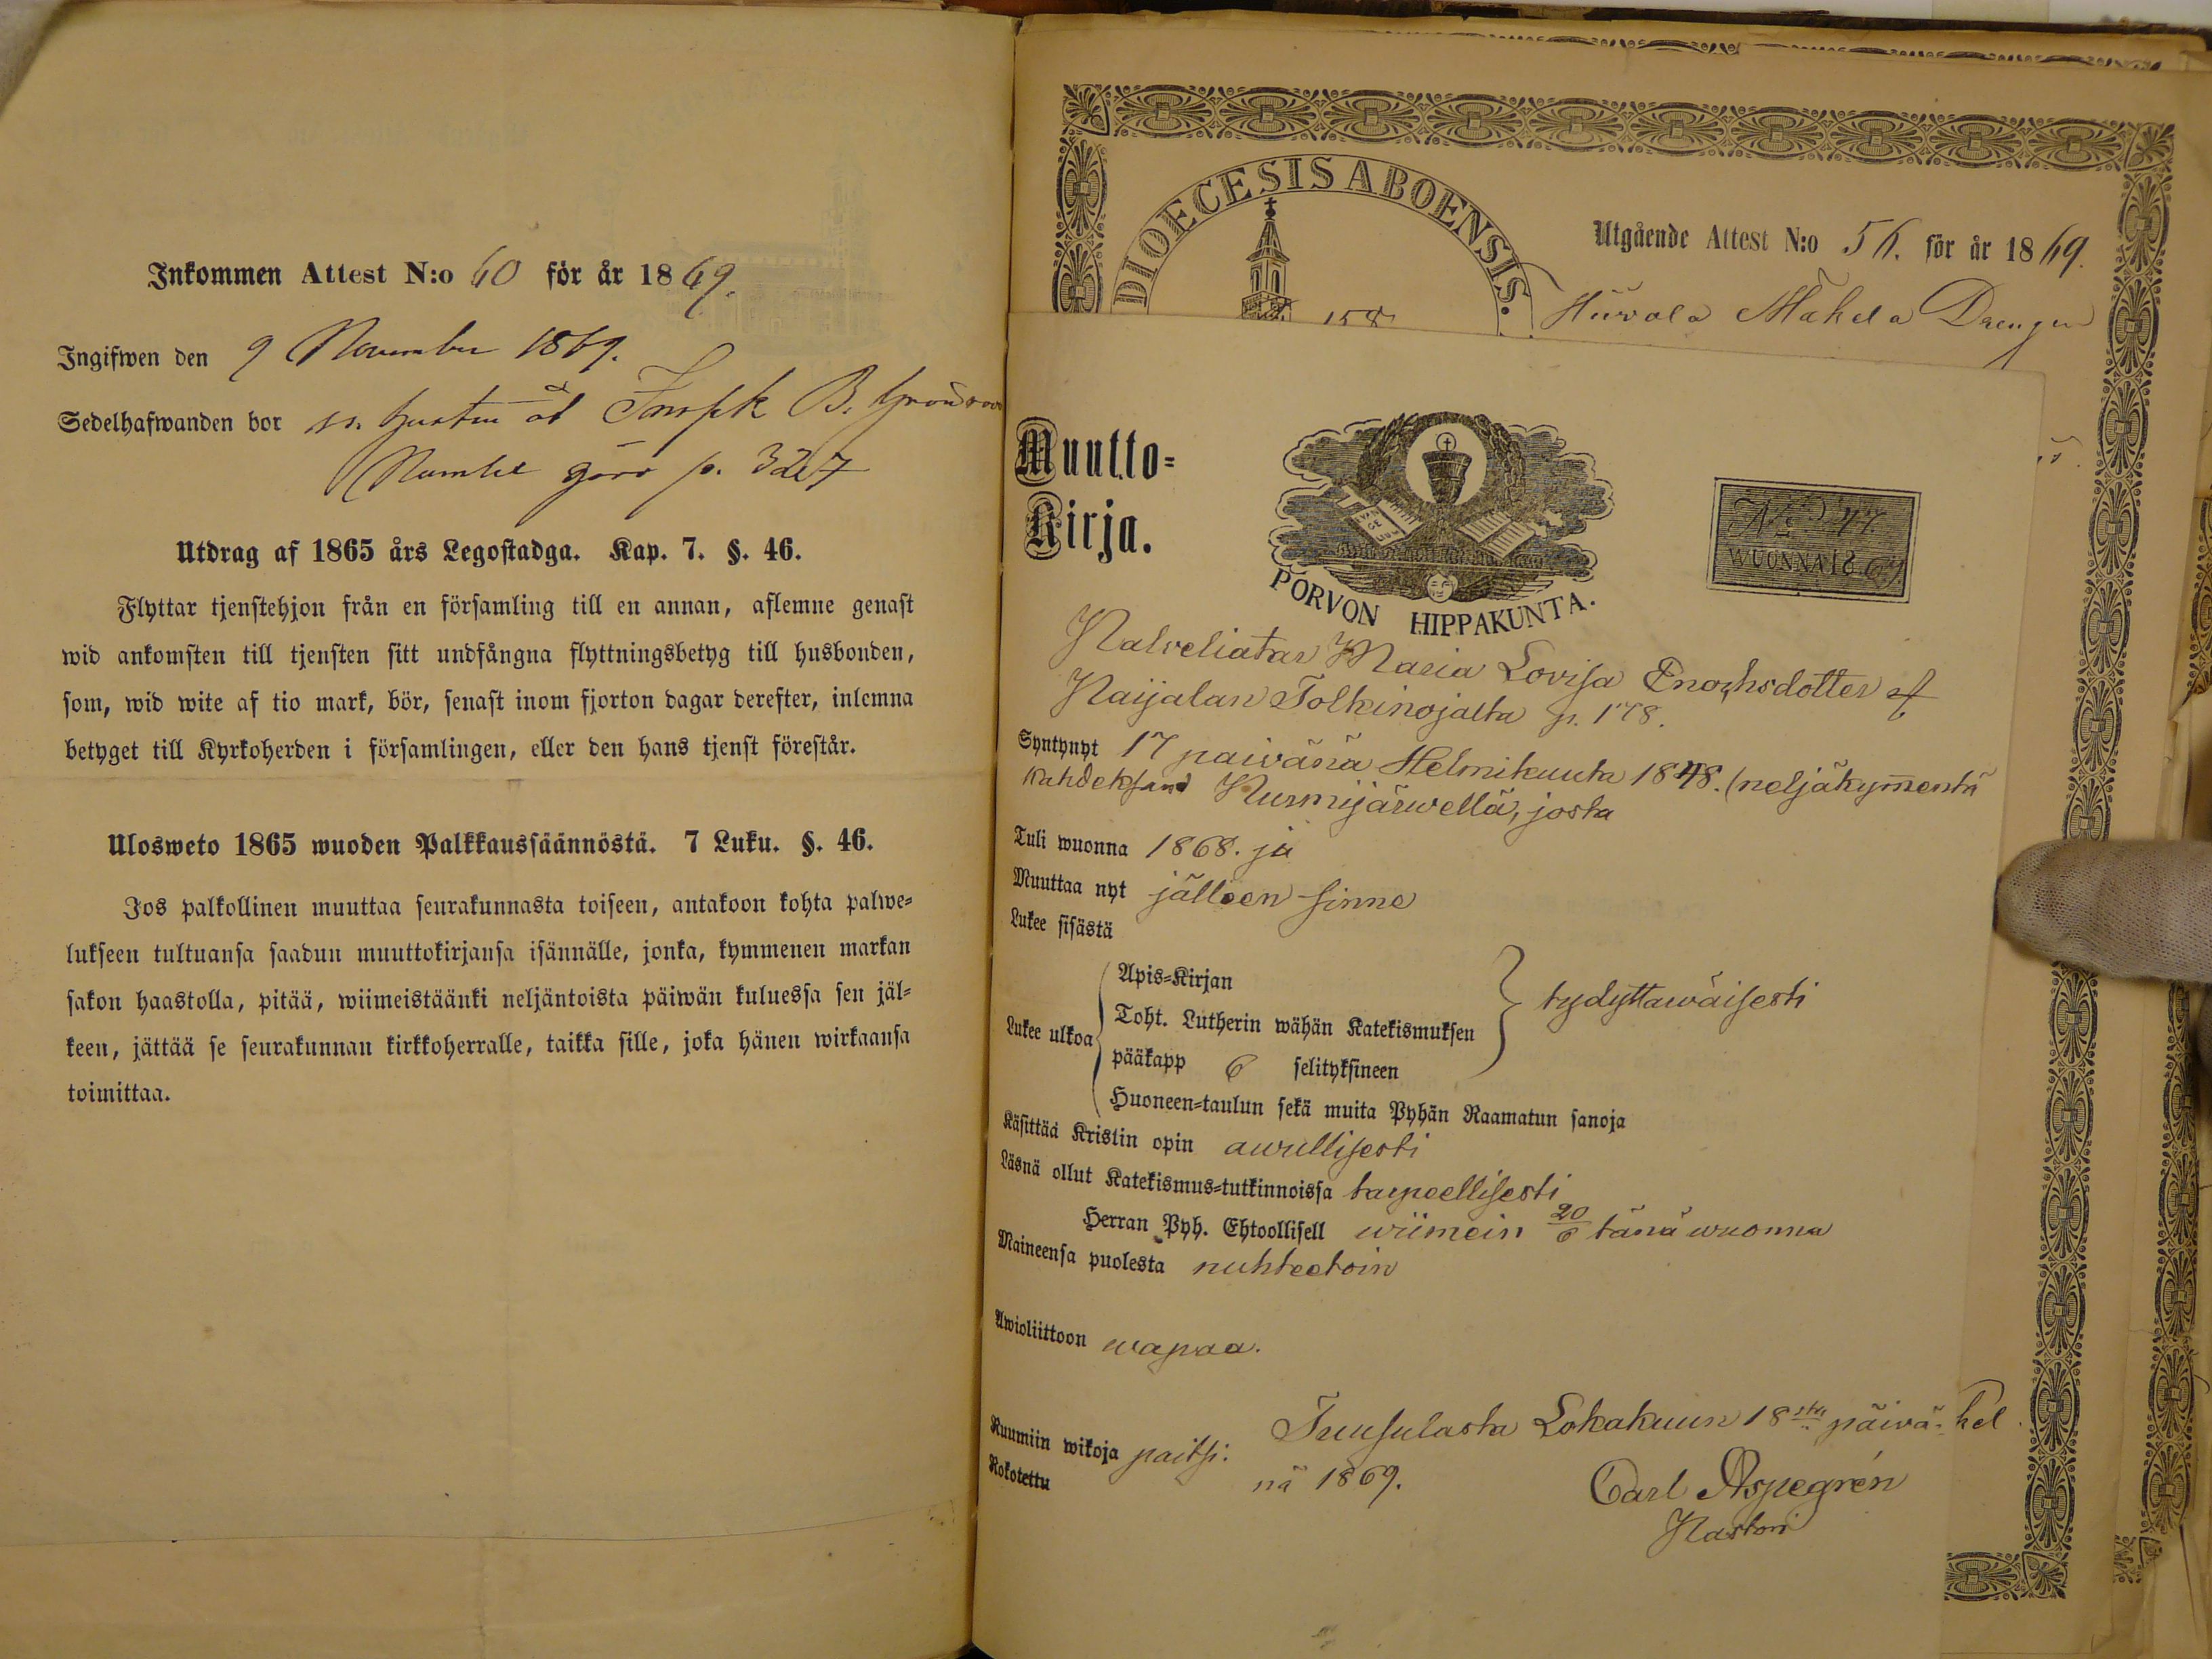 Inkommen Attest N:o 60 för år 1869.
Ingifwen den 9 November 1869.
Sedelhafwanden bor hustru åt B.
p. 327
Utdrag af 1865 års Legostadga. Kap. 7. §. 46.
Flyttar tjenstehjon från en församling till en annan, aflemne genast
wid ankomsten till tjensten sitt undfångna flyttningsbetyg till husbonden,
som, wid wite af tio mark, bör, senast inom fjorton dagar derefter, inlemna
betyget till Kyrkoherden i församlingen, eller den hans tjenst förestår.
Ulosweto 1865 wuoden Palkkaussäännöstä. 7 Luku. §. 46.
Jos palkollinen muuttaa seurakunnasta toiseen, antakoon kohta palwe=
lukseen tultuansa saadun muuttokirjansa isännälle, jonka, kymmenen markan
sakon haastolla, pitää, wiimeistäänki neljäntoista päiwän kuluessa sen jäl=
keen, jättää se seurakunnan kirkkoherralle, taikka sille, joka hänen wirkaansa
toimittaa.
DIOECESIS ABOENSIS.
158
Utgående Attest N:o 56. för år 1869.
Mäkelä Drengen
Muutto=
Kirja.
PORVON HIPPAKUNTA.
No 77
WUONNA 1869
Palveliatar Maria Lovisa Enochsdotter
Paijalan Tolkinojalta p. 178.
Syntynyt 17 päivänä Helmikuuta 1848. (neljäkymmentä
kahdeksan) Nurmijärwellä, josta
Tuli wuonna 1868. ja
Muuttaa nyt jälleen sinne
Lukee sisästä
Lukee ulkoa
Apis=Kirjan
Toht. Lutherin wähän Katekismuksen
pääkapp 6 selityksineen
Huoneen=taulun sekä muita Pyhän Raamatun sanoja
tydyttawäisesti
Käsittää Kristin opin awullisesti
Läsnä ollut Katekismus=tutkinnoissa tarpeellisesti
Herran Pyh. Ehtoollisell wiimein 20/6 tänä wuonna
Maineensa puolesta nuhteetoin
Awioliittoon wapaa.
Ruumiin wikoja paitsi.
Rokotettu
Tuusulasta Lokakuun 18sta päivä-
nä 1869.
Carl Aspegrén
Pastori